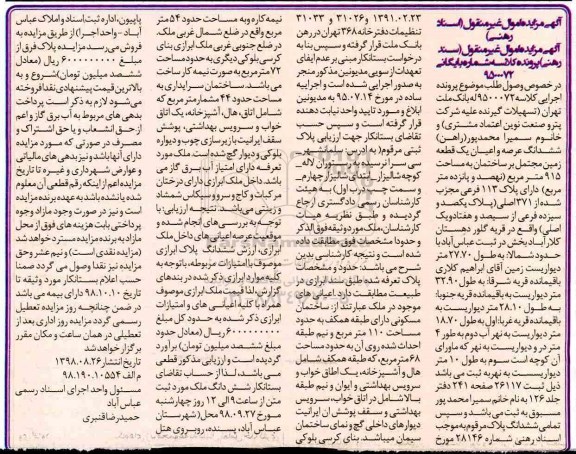 آگهی مزایده اموال غیرمنقول (اسناد رهنی)
آگهی مزایده اموال غیرمنقول (سند رهنی) پرونده کلاسه شماره بایگانی
۹۵۰۰۰۷۲
در خصوص وصول طلب موضوع پرونده
اجرایی کلاسه ۹۵۰۰۰۷۲ له بانک ملت
تهران (تسهیلات گیرنده علیه شرکت
پترو صنعت نوین اعتماد مشتری) و
خانم سمیرا محمدپور (راهن)
ششدانگ عرصه و اعیان یک قطعه
زمین مجتمل بر ساختمان به مساحت
۹۱۵ متر مربع (نهصد و پانزده متر
مربع) دارای پلاک ۱۱۳ فرعی مجزب
شده از ۳۷۱ اصلی (پلاک یکصد و
سیزده فرعی از سیصد و هفتادویک
اصلی) واقع در قریه گلور دهستان
کلارآباد بخش در ثبت عباس آباد با
حدود شمالا: به طول ۲۷.۷۰ متر
دیواریست زمین آقای ابراهیم کلاری
باقیمانده قریه شرقا: به طول ۳۲.۹۰
متر دیواریست به باقیمانده قریه جنوبا:
به طول ۲۸.۱۰ متر دیواریست به
باقیمانده قریه غربا: اول به طول ۱۸.۷۰
متر دیواریست به نهر آب دوم به طول ۴
متر در و دیواریست به نهر که ماورای
آن کوچه است سوم به طول ۱۰ متر
دیواریست به نهریه ثبت می باشد
ذیل ثبت ۲۶۱۱۷ صفحه ۲۴۱ دفتر
جلد ۱۲۶ به نام خانم سمیرا محمد پور
مسبوق به ثبت می باشد و سپس
تمامی ششدانگ پلاک مرقوم به موجب
اسناد رهنی شماره ۲۸۱۴۶ مورخ
۱۳۹۱.۰۲.۲۳ و ۳۱۰۲۶ و ۳۱۰۳۳
تنظیمات دفترخانه ۳۶۸ تهران در رهن
بانک ملت قرار گرفته و سپس بنا به
درخواست بستانکار مبنی بر عدم ایفای
تعهدات از سوی مدیونین مذکور منجر
به صدور اجراییه شده است و اجراییه
ساده در مورخ ۹۵.۰۷.۱۴ به مدیونین
ابلاغ و مورد تایید واحد نیابت دهنده
قرار گرفته است و سپس حسب
تقاضای بستانکار جهت ارزیابی پلاک
ثبتی مرقوم (به آدرس سلمانشهر
سی سرا نرسیده به رستوران لاله
کوچه شالیزار انتهای شالیزار چهارم
و سمت چپ درب اول) به هیئت
کارشناسان رسمی دادگستری ارجاع
گردیده و طبق نظریه هیات
کارشناسان، ملک مورد وثیقه فوق الذکر
و حدودا مشخصات فوق مطابقت داده
شده است و نتیجه کارشناسی بدین
شرح می باشد: حدود و مشخصات
پلاک تعرفه شده طبق سند ابرازی در
طبیعت مطابقت دارد. اعیانی های
موجود در ملک عبارتند از: ساختمان
مسکونی دارای طبقه همکف به حدود
مساحت ۱۱۰ متر مربع و نیم طبقه
احداث شده روی آن به حدود مساحت
۶۸ مترمربع، که طبقه همکف شامل
هال و آشپزخانه، یک اطاق خواب و
سرویس بهداشتی و ایوان و نیم طبقه
بالا شامل دو اتاق خواب، سرویس
بهداشتی و سقف پوشش آن ایرانیت
دیوارهای داخلی گچ و نمای ساختمان
سیمان میباشد. بنای کرسی بلوکی
نیمه کاره به مساحت حدود ۵۴ متر
مربع واقع در ضلع شمال غربی ملک.
در ضلع جنوبی غربی ملک ابرازی بنای
کرسی بلوکی دیگری به حدود مساحت
۷۲ متر مربع به صورت نیمه کار ساخت
می باشد. ساختمان سرایداری به
مساحت حدود ۴۴ شمار متر مربع که
شامل اتاق، هال، آشپزخانه، یک اتاق
خواب و سرویس بهداشتی، پوشش
سقف ایرانیت با زیرسازی چوب و دیواره
بلوکی و دیوار گچ شده است. ملک مورد
تعرفه دارای امتیاز آب، برق گاز می
باشد. داخل ملک ابرازی دارای درختان
مرکبات و کاج و سرو و سیکاس شمشاد
و زینتی می باشد. نتیجه ارزیابی: با
توجه به بررسی های انجام شده و
موقعیت عرصه اعیانی های داخل ملک
ابرازی، ارزش ششدانگ پلاک ابرازی
موصوف با امتیازات مربوطه، با توجه به
کلیه موارد ابرازی ذکر شده در بندهای
گزارش، لذا قیمت ملک ابرازی موصوف
همراه با کلیه اعیانی های و امتیازات
ابرازی ذکر شده به حدود کل مبلغ
۶۰۰۰۰۰۰۰۰۰ ریال (معادل حدود
مبلغ ششصد میلیون تومان) برآورد
گردیده است و ارزیابی مذکور قطعی
می باشد، لذا از حساب تقاضای
بستانکار شش دانگ ملک مورد ثبت
متن از ساعت ۹ الی ۱۲ روز چهارشنبه
مورخ ۹۸.۰۹.۲۷ محل (شهرستان
عباس آباد، پسنده، روبروی هتل
پاپیون، اداره ثبت اسناد و املاک عباس
آباد - واحد اجرا) از طریق مزایده به
فروش می رسد. مزایده پلاک فوق از
مبلغ ۶۰۰۰۰۰۰۰۰۰ ریال (معادل
ششصد میلیون تومان) شروع و به
بالاترین قیمت پیشنهادی نقدا فروخته
می شود لازم به ذکر است پرداخت
بدهی های مربوط به آب برق گاز و اعم
از حق انشعاب و یا حق اشتراک و
مصرف در صورتی که مورد مزایده
دارای آنها باشد و نیز بدهی های مالیاتی
و عوارض شهرداری و غیره تا تاریخ
مزایده اعم از اینکه رقم قطعی آن معلوم
شده یا نشده باشد به عهده برنده مزایده
است و نیز در صورت وجود مازاد وجوه
پرداختی بابت هزینه های فوق از محل
مازاد به برنده مزایده مسترد خواهد شد
(مزایده نقدی است) و نیم عشر و حق
مزایده نیز نقدا وصول می گردد ضمنا
حسب اعلام بستانکار مورد وثیقه تا
تاریخ ۹۸.۱۰.۱۰ دارای بیمه می باشد
در ضمن چنانچه روز مزایده تعطیل
رسمی گردد مزایده روز اداری بعد از
تعطیلی در همان ساعت و مکان مقرر
برگزار خواهد شد
تاریخ انتشار: ۱۳۹۸.۰۸.۲۶
م الف ۹۸.۱۹۰.۱۰۵۵۴
مسئول واحد اجرای اسناد رسمی
عباس آباد
حمیدرضا قنبری